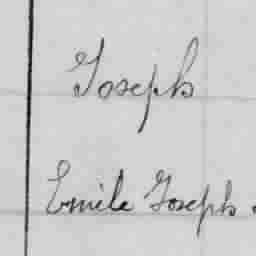 Joseph
Emile Joseph